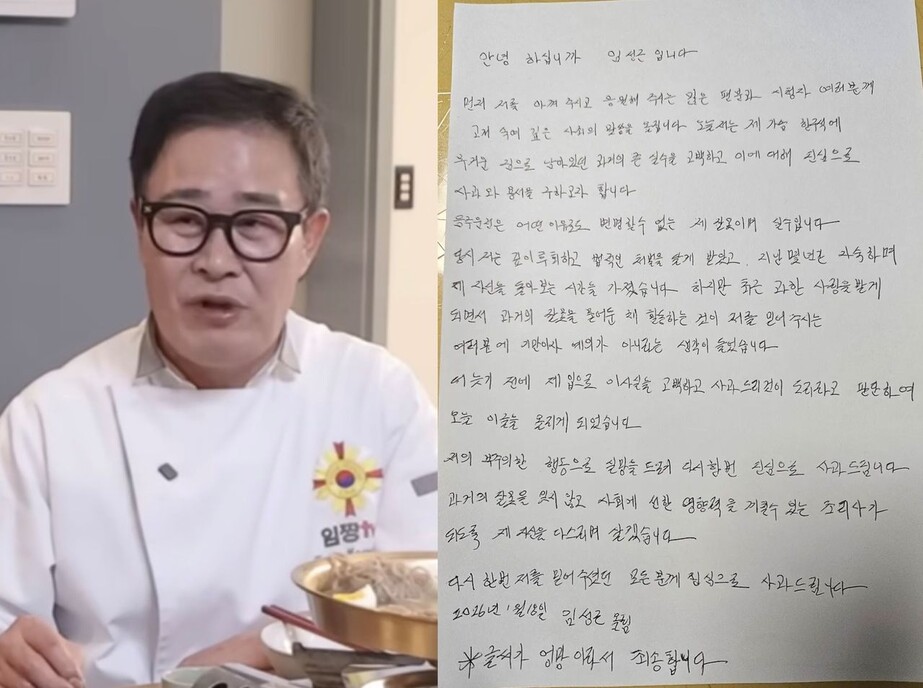 임짱TV
안녕 하십니까 임성근 입니다
먼저 저를 아껴 주시고 응원해 주시는 많은 팬분과 시청자 여러분께
고개 숙여 깊은 사죄의 말씀을 드립니다 오늘 저는 제 가슴 한구석에
무거운 짐으로 남아있던 과거의 큰 실수를 고백하고 이에 대해 진심으로
사과와 용서를 구하고자 합니다
음주운전은 어떤 이유로도 변명할수 없는 제 잘못이며 실수입니다
당시 저는 깊이 후회하고 법적인 처벌을 달게 받았고, 지난 몇년간 자숙하며
제 자신을 돌아보는 시간을 가졌습니다 하지만 최근 과한 사랑을 받게
되면서 과거의 잘못을 묻어둔 채 활동하는 것이 저를 믿어 주시는
여러분에 기만이자 예의가 아니라는 생각이 들었습니다
더 늦기 전에 제 입으로 이사실을 고백하고 사과드리것이 도리라고 판단하여
오늘 이글을 올리게 되었습니다
저의 부주의한 행동으로 실망을 드려 다시한번 진심으로 사과드립니다
과거의 잘못을 잊지 않고 사회에 선한 영향력을 끼칠수 있는 조리사가
되도록 제 자신을 다스리며 살겠습니다
다시 한번 저를 믿어 주셨던 모든분께 진심으로 사과드립니다
2026년 1월 18일 임성근 올림
※글씨가 엉망 이라서 죄송합니다